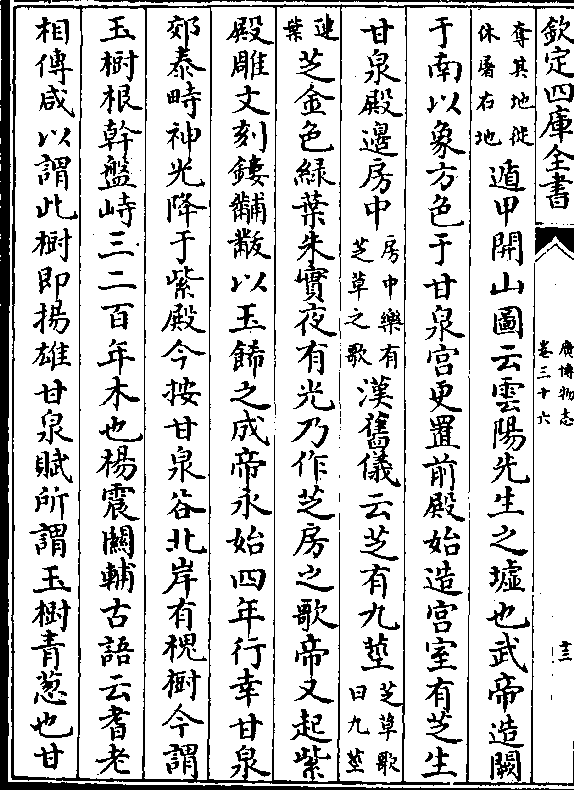 欽定四庫全書
廣博物志
卷三十六
十三
奪其地徙
休屠右地
遁甲開山圖云雲陽先生之墟也武帝造闕
于南以象方色于甘泉宮更置前殿始造宮室有芝生
甘泉殿邊房中
房中樂有
芝草之歌
漢舊儀云芝有九莖
芝草歌
曰九莖
連
葉
芝金色綠葉朱實夜有光乃作芝房之歌帝又起紫
殿雕文刻鏤黼黻以玉飾之成帝永始四年行幸甘泉
郊泰畤神光降于紫殿今按甘泉谷北岸有槐樹今謂
玉樹根幹盤峙三二百年木也楊震關輔古語云耆老
相傳咸以謂此樹即揚雄甘泉賦所謂玉樹青葱也甘